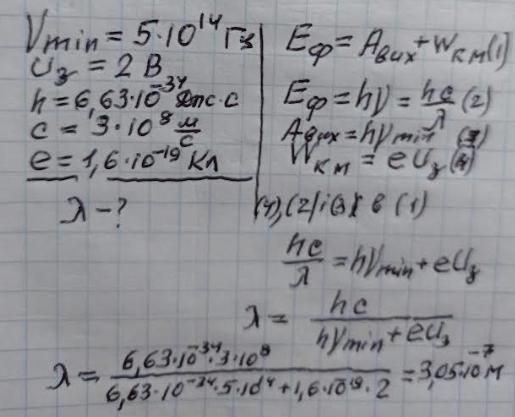 νmin = 5·10¹⁴ Гц
Uз = 2 В
h = 6,63·10⁻³⁴ Дж·с
c = 3·10⁸ м/с
e = 1,6·10⁻¹⁹ Кл
λ - ?
Eф = Aвих + Wкм (1)
Eф = hν = hc/λ (2)
Aвих = hνmin (3)
Wкм = eUз (4)
(4), (2) і (3) в (1)
hc/λ = hνmin + eUз
λ = hc/(hνmin + eUз)
λ = 6,63·10⁻³⁴·3·10⁸/(6,63·10⁻³⁴·5·10¹⁴ + 1,6·10⁻¹⁹·2) = 3,05·10⁻⁷ м